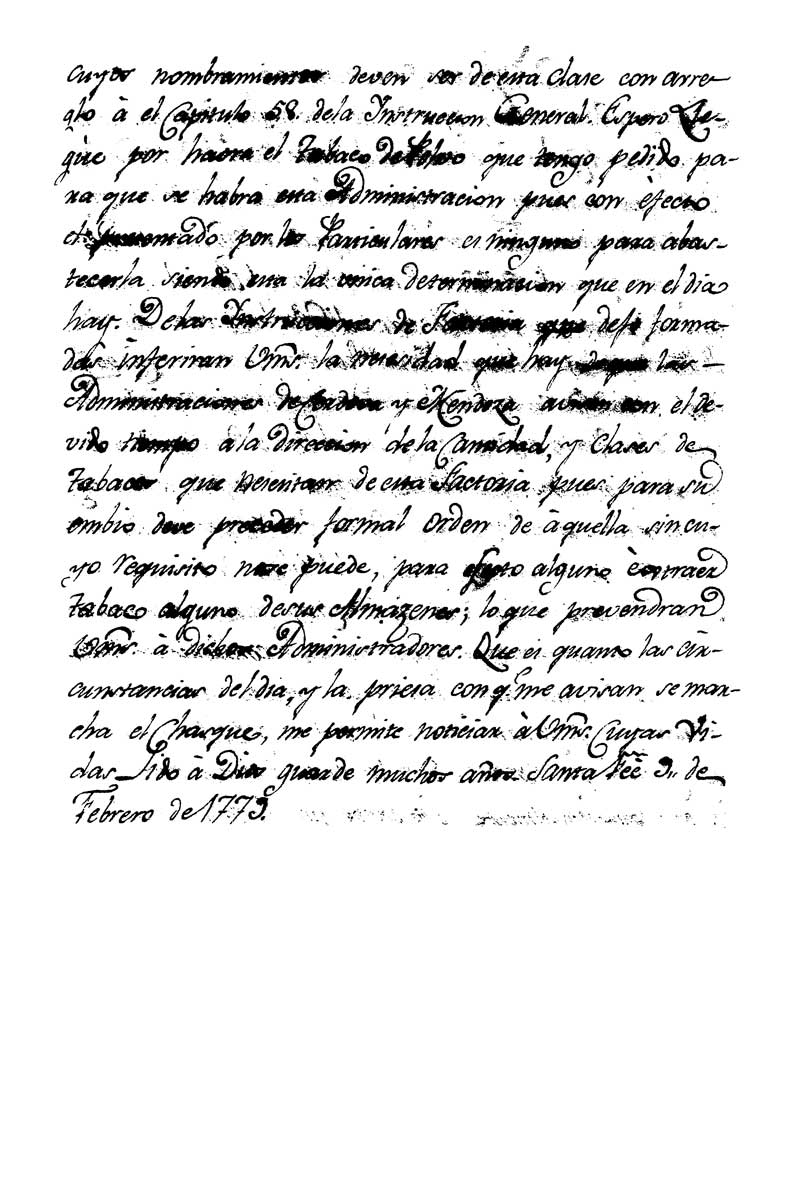 cuyos nombramientos deven ser de esta clase con arre-
glo à el Capitulo 58. dela Instruccion General. Espero Lle-
gùe por haora el Tabaco de Polvo que tengo pedido pa-
ra que se habra esta Administracion pues con èfecto
el presentado por los Particulares es ninguno para abas-
tecerla siendo esta la unica determinacion que en el dia
hay. Delas Instrucciones de Factoria que dejè forma-
das ìnferiran Vms. la necesidad que hay de que las
Administraciones de Cordova y Mendoza avisen con el de-
vido tiempo a la direccion de la Cantidad, y Clases de
tabacos que necesitan de esta Factoria pues para su
embio deve preceder formal orden de àquella sin cu-
yo requisito no se puede, para efecto alguno èxtraer
tabaco alguno desus Almazenes; lo que prevendran
Vms. à dichos Administradores. Que es quanto las cir-
cunstancias del dia, y la priesa con q.e me avisan se mar-
cha el Chasque, me permite noticiar à Vms. Cuyas vi-
das Pido à Dios guarde muchos años. Santa Feè 9,, de
Febrero de 1779.